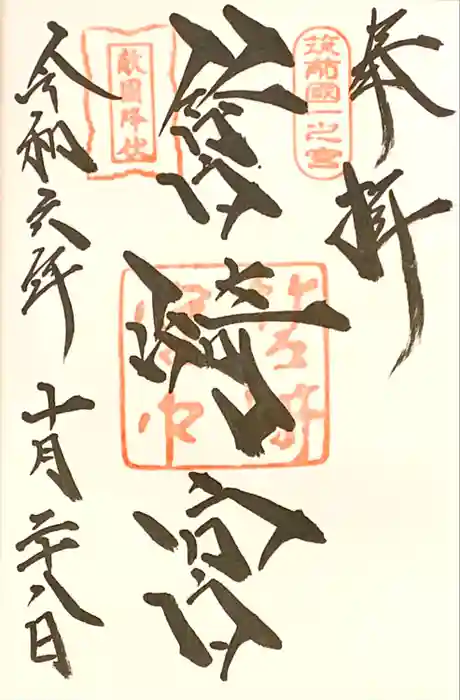 奉拝
筑前國一之宮
筥崎宮
敵國降伏
令和六年十月二十八日